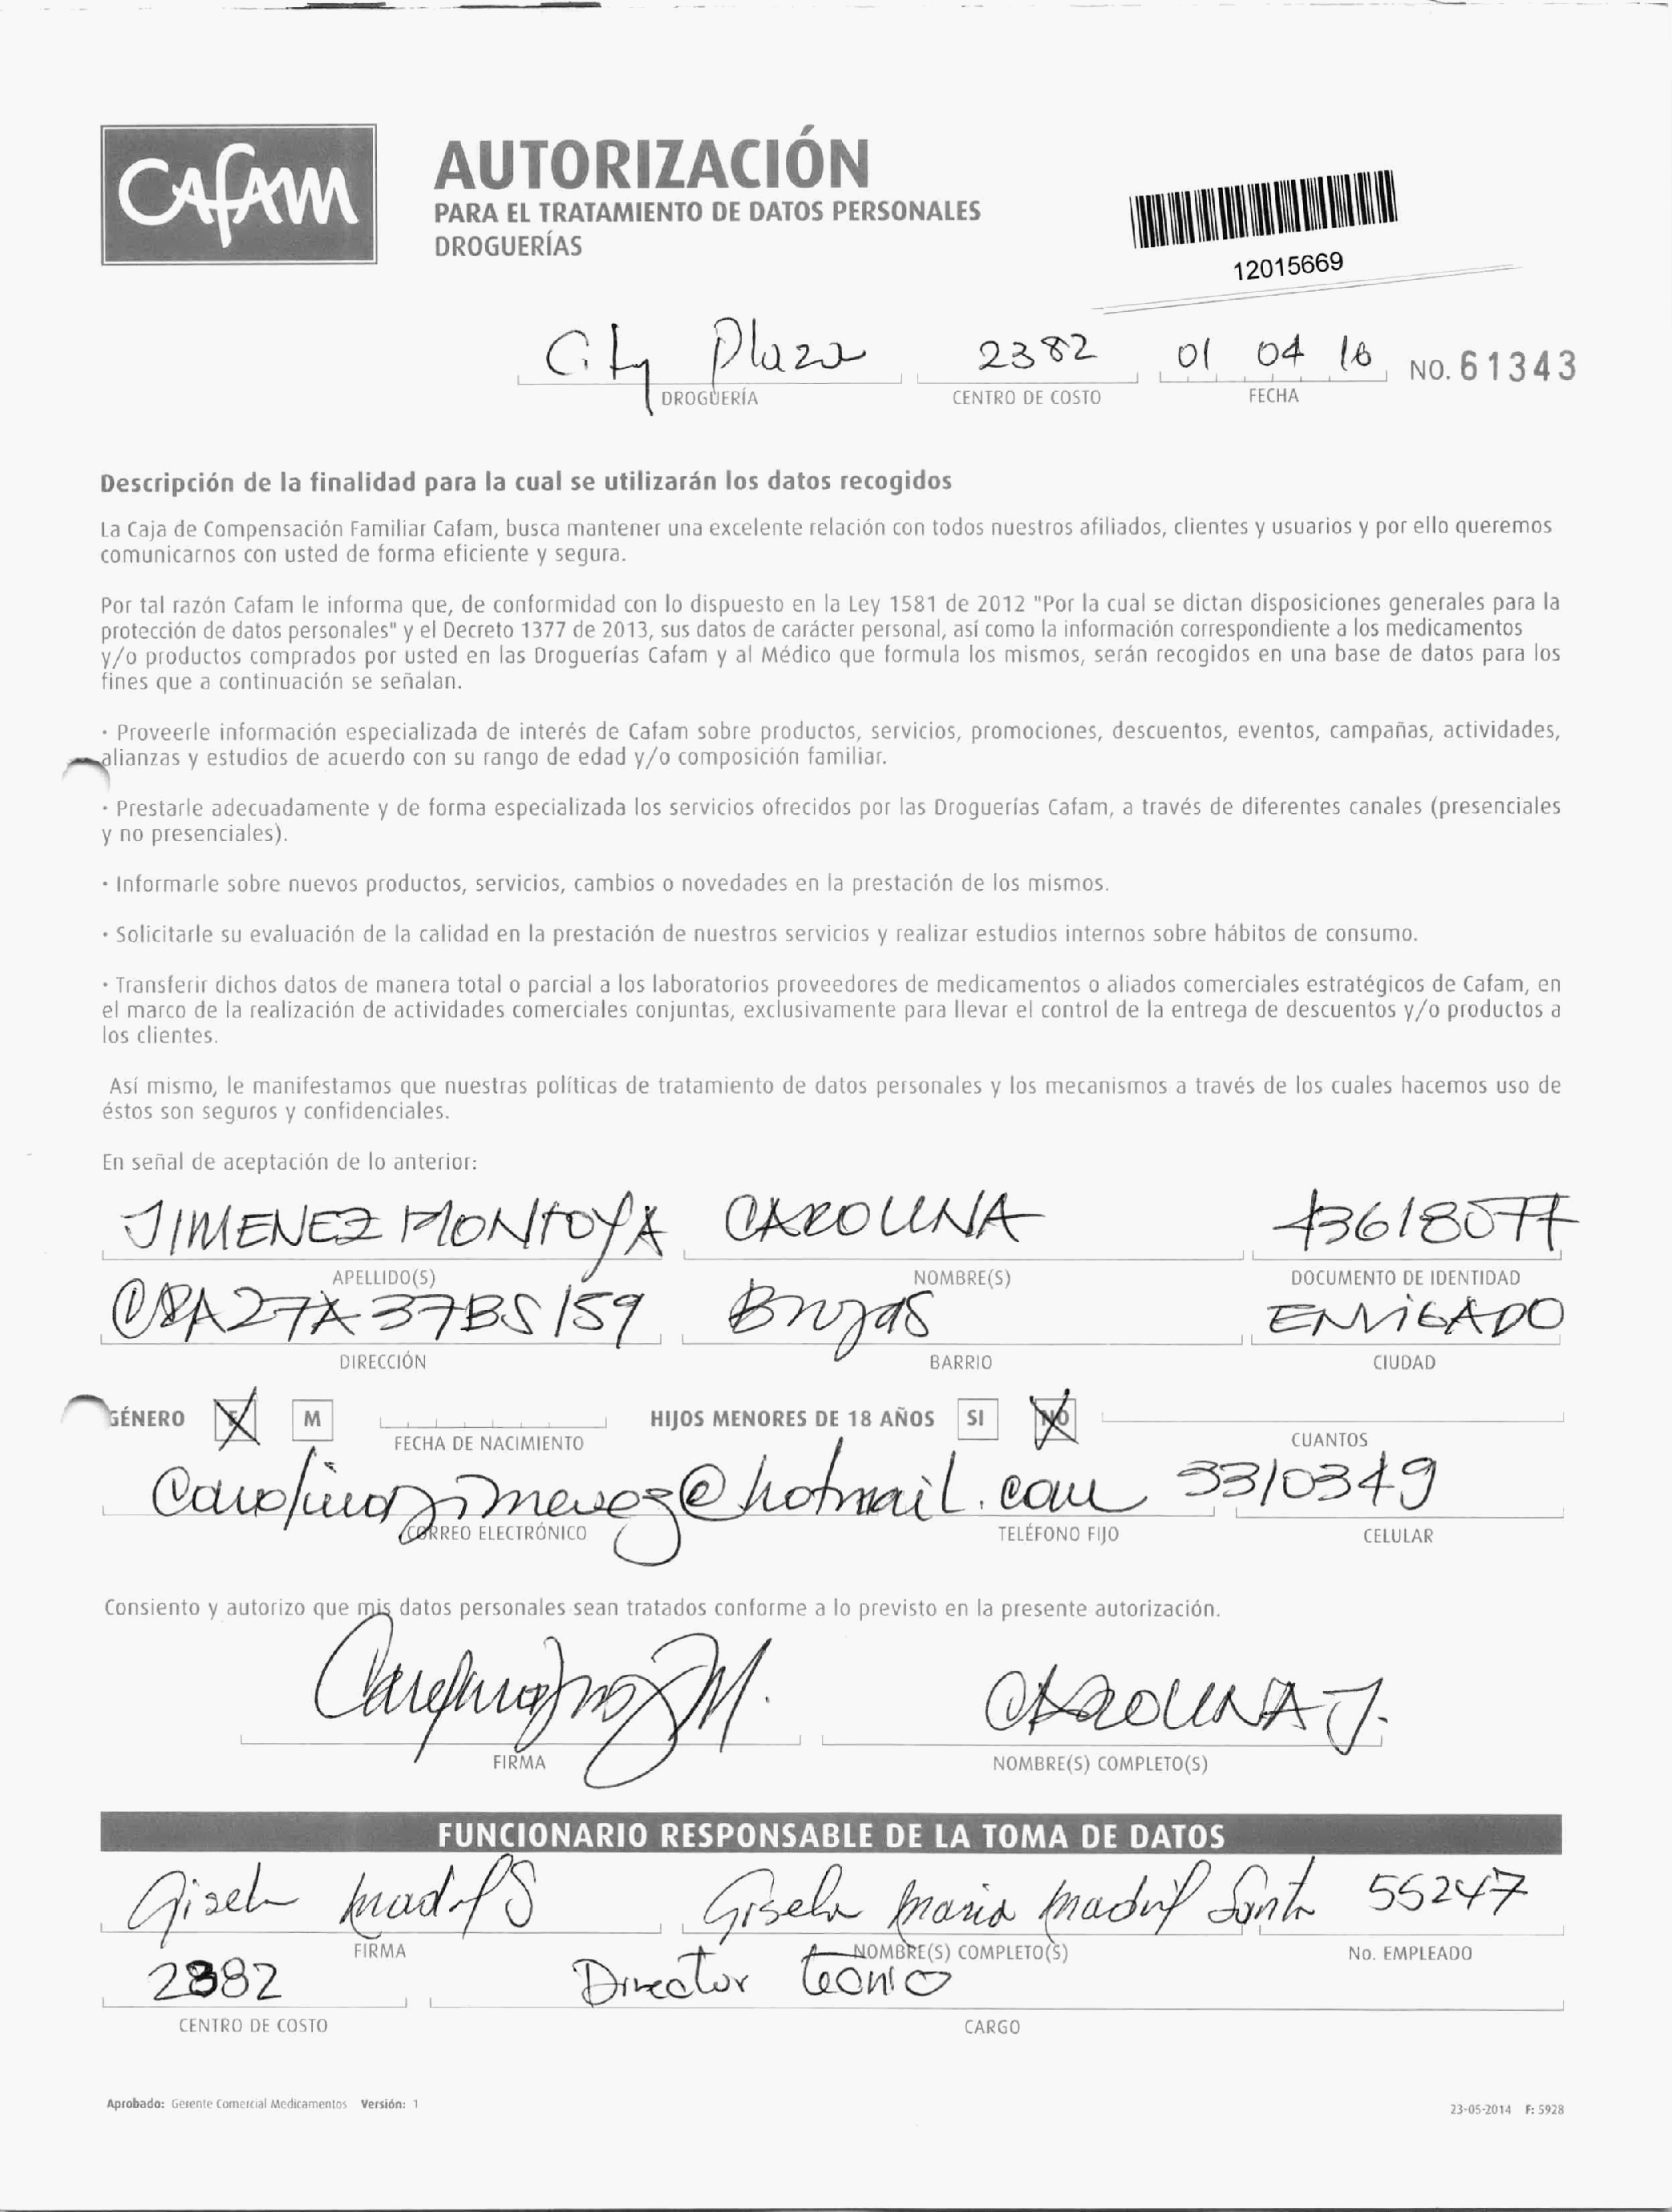 Cafam
AUTORIZACIÓN
PARA EL TRATAMIENTO DE DATOS PERSONALES
DROGUERÍAS
12015669
City Plaza 2382 01 04 16 NO. 61343
DROGUERÍA CENTRO DE COSTO FECHA
Descripción de la finalidad para la cual se utilizarán los datos recogidos
La Caja de Compensación Familiar Cafam, busca mantener una excelente relación con todos nuestros afiliados, clientes y usuarios y por ello queremos
comunicarnos con usted de forma eficiente y segura.
Por tal razón Cafam le informa que, de conformidad con lo dispuesto en la Ley 1581 de 2012 "Por la cual se dictan disposiciones generales para la
protección de datos personales" y el Decreto 1377 de 2013, sus datos de carácter personal, así como la información correspondiente a los medicamentos
y/o productos comprados por usted en las Droguerías Cafam y al Médico que formula los mismos, serán recogidos en una base de datos para los
fines que a continuación se señalan.
· Proveerle información especializada de interés de Cafam sobre productos, servicios, promociones, descuentos, eventos, campañas, actividades,
alianzas y estudios de acuerdo con su rango de edad y/o composición familiar.
· Prestarle adecuadamente y de forma especializada los servicios ofrecidos por las Droguerías Cafam, a través de diferentes canales (presenciales
y no presenciales).
· Informarle sobre nuevos productos, servicios, cambios o novedades en la prestación de los mismos.
· Solicitarle su evaluación de la calidad en la prestación de nuestros servicios y realizar estudios internos sobre hábitos de consumo.
· Transferir dichos datos de manera total o parcial a los laboratorios proveedores de medicamentos o aliados comerciales estratégicos de Cafam, en
el marco de la realización de actividades comerciales conjuntas, exclusivamente para llevar el control de la entrega de descuentos y/o productos a
los clientes.
Así mismo, le manifestamos que nuestras políticas de tratamiento de datos personales y los mecanismos a través de los cuales hacemos uso de
éstos son seguros y confidenciales.
En señal de aceptación de lo anterior:
JIMENEZ MONTOYA CAROLINA 43618077
APELLIDO(S) NOMBRE(S) DOCUMENTO DE IDENTIDAD
CRA27A 37BS 159 Brujas ENVIGADO
DIRECCIÓN BARRIO CIUDAD
GÉNERO F M FECHA DE NACIMIENTO HIJOS MENORES DE 18 AÑOS SI NO CUANTOS
carolinajimenez@hotmail.com 3310349
CORREO ELECTRÓNICO TELÉFONO FIJO CELULAR
Consiento y autorizo que mis datos personales sean tratados conforme a lo previsto en la presente autorización.
CAROLINA J.
FIRMA NOMBRE(S) COMPLETO(S)
FUNCIONARIO RESPONSABLE DE LA TOMA DE DATOS
Gisela Madrid S Gisela Maria Madrid Santa 55247
FIRMA NOMBRE(S) COMPLETO(S) No. EMPLEADO
2382 Director tecnico
CENTRO DE COSTO CARGO
Aprobado: Gerente Comercial Medicamentos Versión: 1
23-05-2014 F: 5928